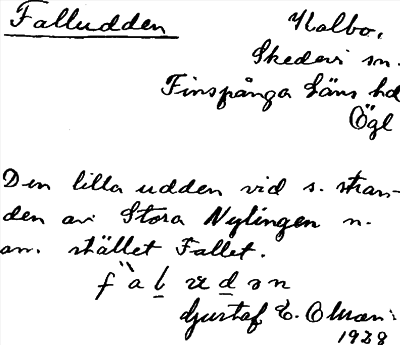 Falludden
Kalbo,
Skedevi sn.
Finspånga Läns hd
Ögl
Den lilla udden vid s. stran-
den av Stora Nylingen n.
om. stället Fallet.
Gustaf E. Olsson
1928